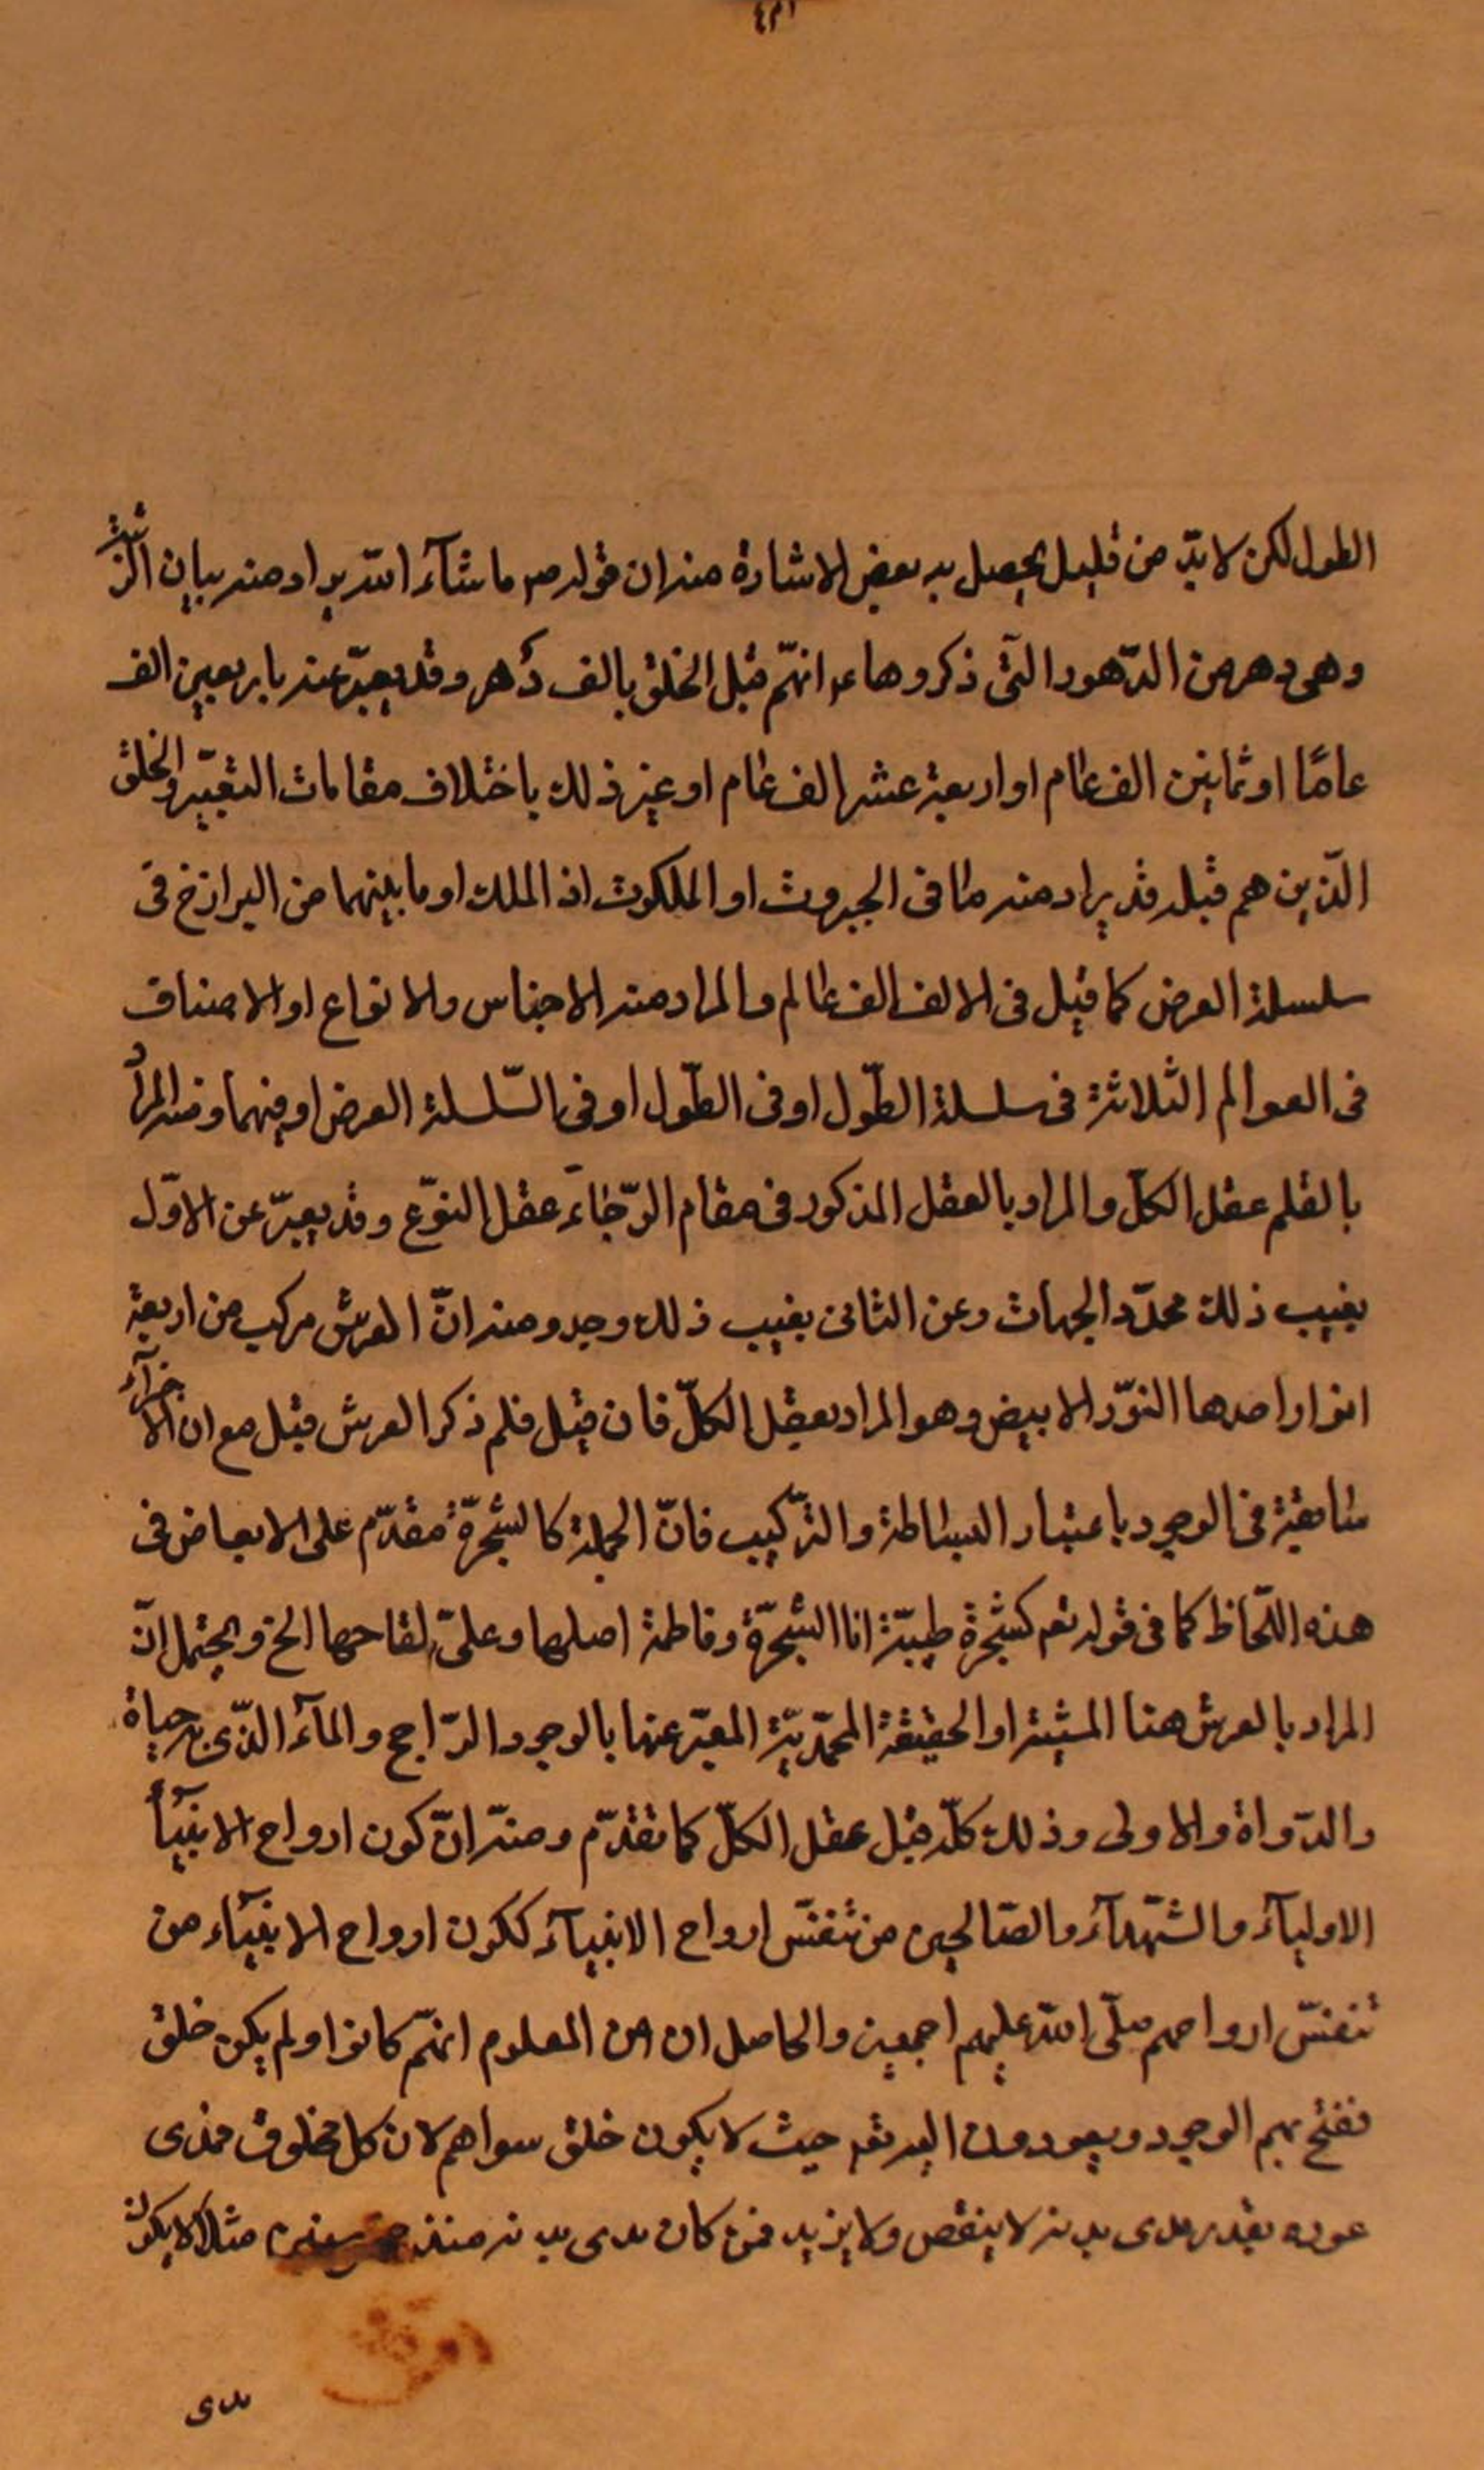 الطول لكن لا بدّ من قليل يحصل به بعض الاشارة منه ان قوله ص ما شآء الله يراد منه بيان الرتبة
وهى دهر من الدّهور الّتى ذكروها ع انهّم قبل الخلق بالف دهر وقد يعبّر عنه باربعين الف
عامًا او ثمانين الف عام او اربعة عشر الف عام او غير ذلك باختلاف مقامات التعبير والخلق
الّذين هم قبله قد يراد منه ما فى الجبروت او الملكوت او الملك او ما بينهما من البرازخ فى
سلسلة العرض كما قيل فى الالف الف عالم والمراد منه الاجناس والانواع او الاصناف
فى العوالم الثلاثة فى سلسلة الطّول او فى الطّول او فى السّلسلة العرض او فيهما ومنه المراد
بالقلم عقل الكلّ والمراد بالعقل المذكور فى مقام الرّجآء عقل النوّع وقد يعبرّ عن الاوّل
بغيب ذلك محدّد الجهات وعن الثانى بغيب ذلك وجه ومنه انّ العرش مركب من اربعة
انوار احدها النوّر الابيض وهو المراد بعقل الكلّ فان قيل فلم ذكر العرش قبل مع ان الاجزآء
سابقة فى الوجود باعتبار البساطة والترّكيب فانّ الجملة كالشجرّة مقدّم على الابعاض فى
هذه اللّحاظ كما فى قوله تعم كشجرة طيبّة انا الشجرّة وفاطمة اصلها وعلىّ لقاحها الخ ويحتمل انّ
المراد بالعرش هنا المشية او الحقيقة المحمّديّة المعبّر عنها بالوجود الرّاجح والمآء الذّى به حياة
والدّواة والاولى وذلك كلّه قبل عقل الكلّ كما تقدّم ومنه انّ كون ارواح الانبيآء
الاوليآء والشهّدآء والصّالحين من تنفسّ ارواح الانبيآء ككون ارواح الانبيآء من
تنفسّ ارواحهم صلّى الله عليهم اجمعين والحاصل ان من المعلوم انهّم كانوا ولم يكن خلق
ففتح بهم الوجود ويعودون اليه تعم حيث لا يكون خلق سواهم لان كل مخلوق فمدى
عوده بقدر مدى بدئه لا ينقص ولا يزيد فمن كان مدى بدئه منذ سنين مثلا لا يكون
مدى